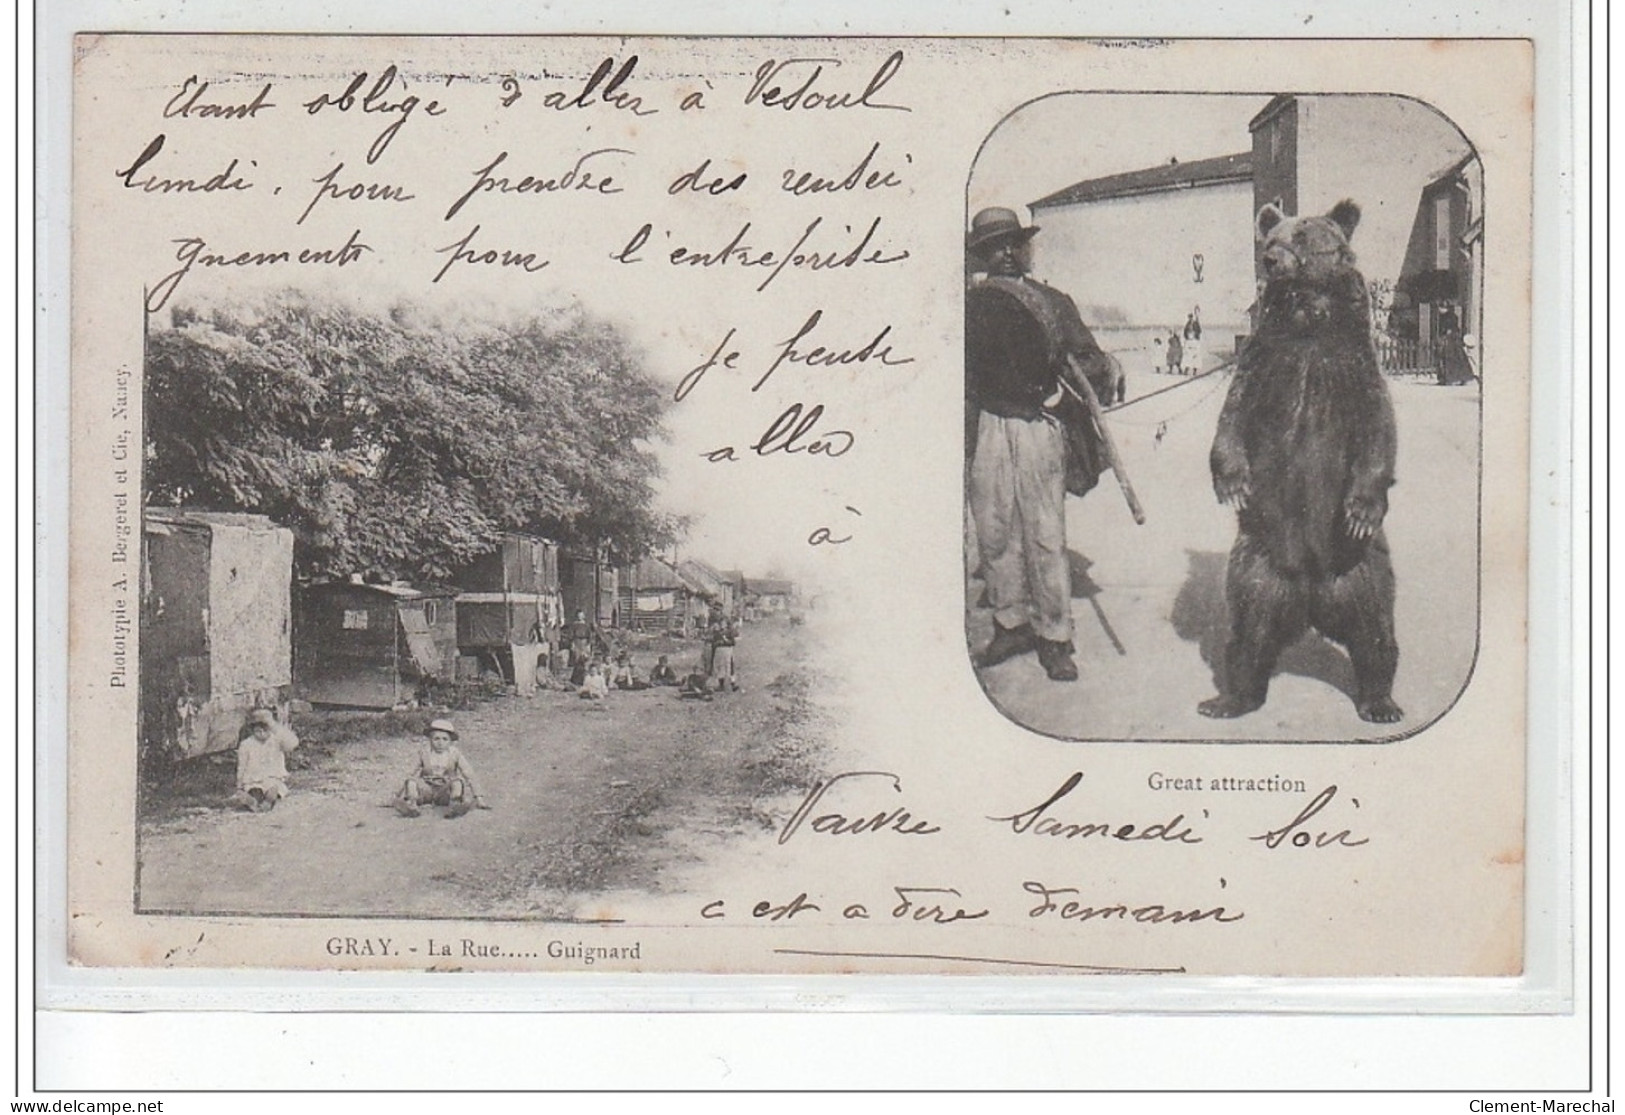 Etant obligé d'aller à Vesoul
lundi, pour prendre des rensei
gnements pour l'entreprise
je pense
aller
à
Vaivre Samedi Soir
c est a dire demain
Great attraction
GRAY. - La Rue..... Guignard
Phototypie A. Bergeret et Cie, Nancy.
delcampe.net
Clement-Marechal